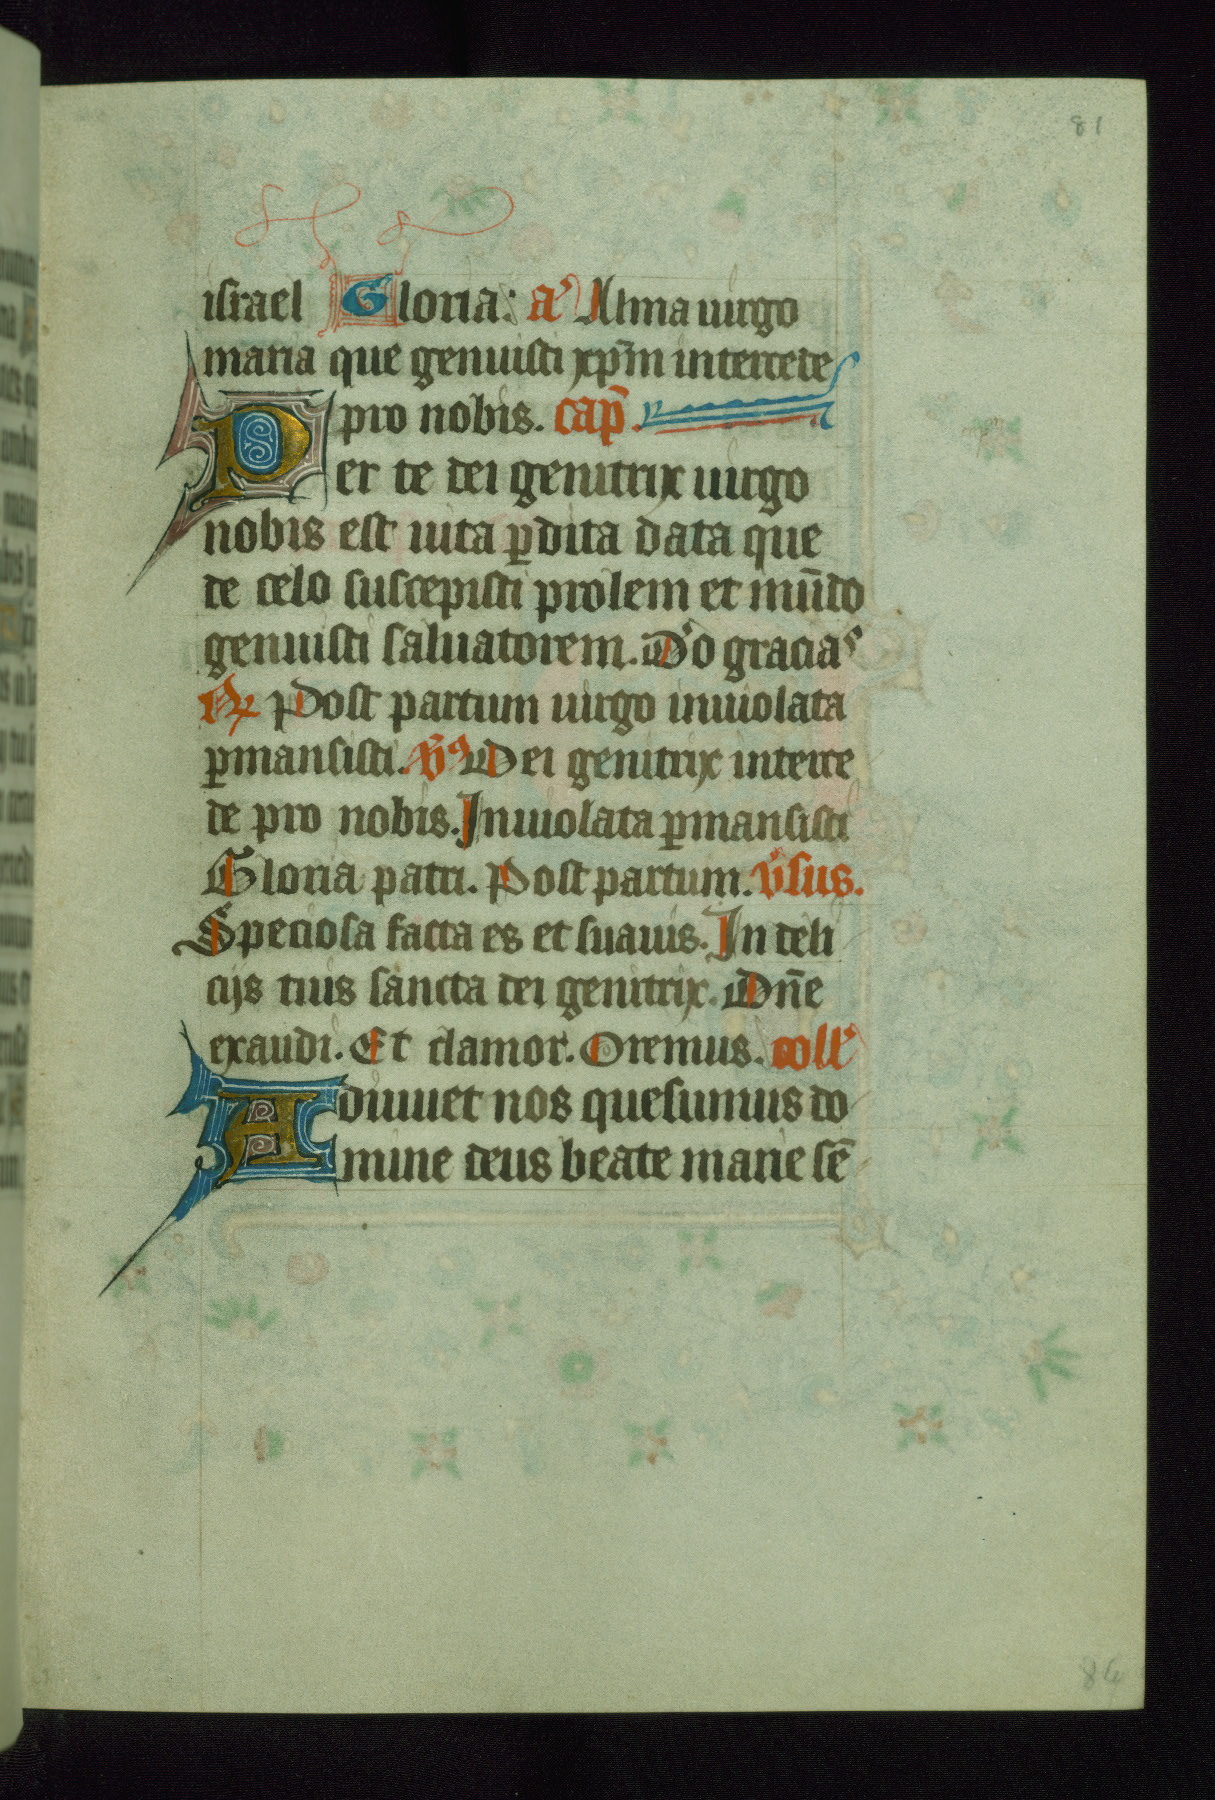 81
israel Gloria: aʼ Alma uirgo
maria que genuisti xp̄m intercede
pro nobis. cap̄.
Per te dei genitrix uirgo
nobis est uita ꝑdita data que
de celo suscepisti prolem et mūdo
genuisti saluatorem. Do gracias
℟ Post partum uirgo inuiolata
ꝑmansisti. v̄ꝰ Dei genitrix interce
de pro nobis. Inuiolata ꝑmansisti
Gloria patri. Post partum. v̾sus.
Speciosa facta es et suauis. In deli
cijs tuis sancta dei genitrix. Dn̄e
exaudi. Et clamor. Oremus. collʼ
Adiuuet nos quesumus do
mine deus beate marie sē
84